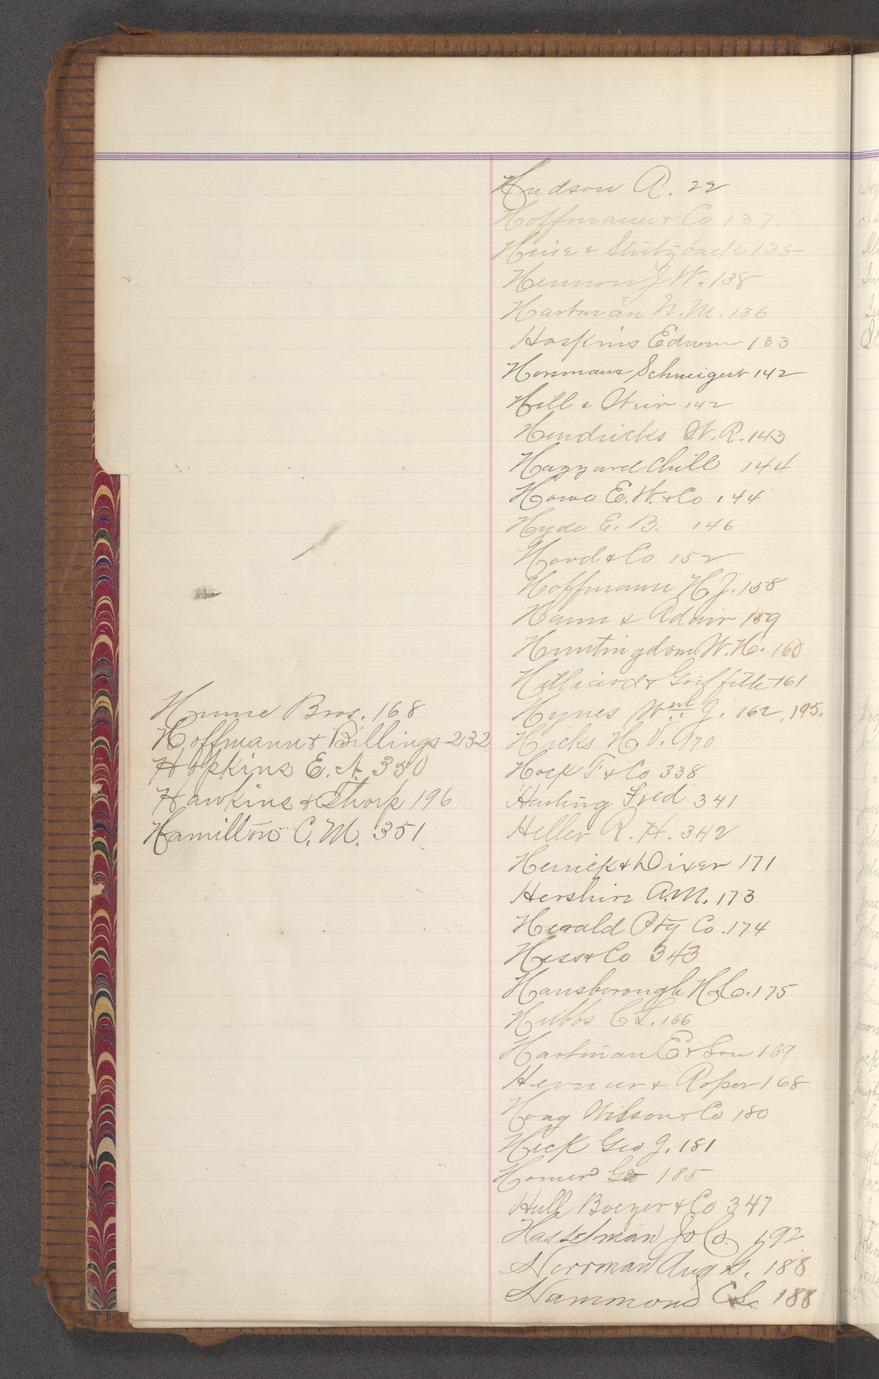 Hume Bros. 168
Hoffmann & Billings 232
Hopkins E. A. 350
Hawkins & Thorp 196
Hamilton C. M. 351
Hudson A. 22
Hoffmann & Co 137.
Heise & Stutzback 138
Hennon J W. 138
Hartman N. M. 136
Hoskins Edwin 133
Hommann Schweigert 142
Hill & Weir 142
Hendricks W. R. 143
Hazzard Chill 144
Howe E. W. & Co 144
Hyde E. B. 146
Hord & Co 152
Hoffmann H J. 158
Hann & Adair 159
Huntingdon W. H. 160
Hilliard & Griffith 161
Hynes Wm J. 162, 195.
Hicks H V. 170
Hock F & Co 338
Harling Fred 341
Heller R. H. 342
Herrick & Dixer 171
Hershire A. M. 173
Herald Ptg Co. 174
Hess & Co 343
Hansborough H. C. 175
Hubbs C L. 166
Hartman E & Son 169
Hevener & Roper 168
Hoag Wilson & Co 180
Heck Geo J. 181
Homer Geo 185
Hull Boezer & Co 347
Hasselman Jo Co 192
Herrman Aug G. 188
Hammond C L. 188